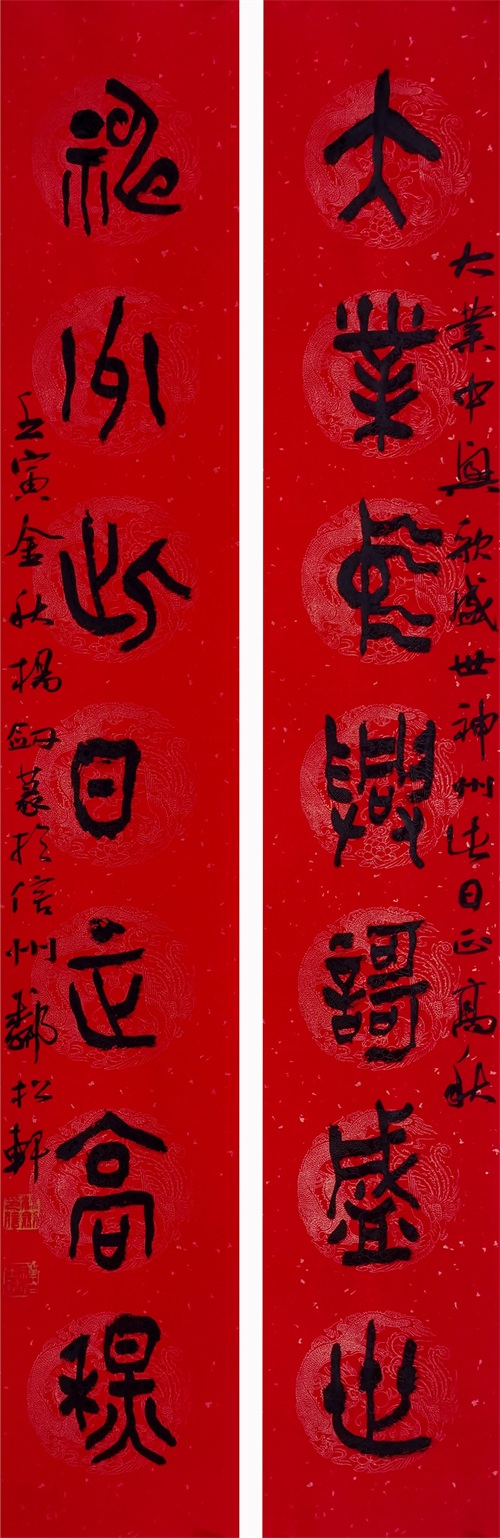 大業中興歌盛世
神州此日正高秋
大業中興歌盛世神州此日正高秋
壬寅金秋楊劍於信州松軒